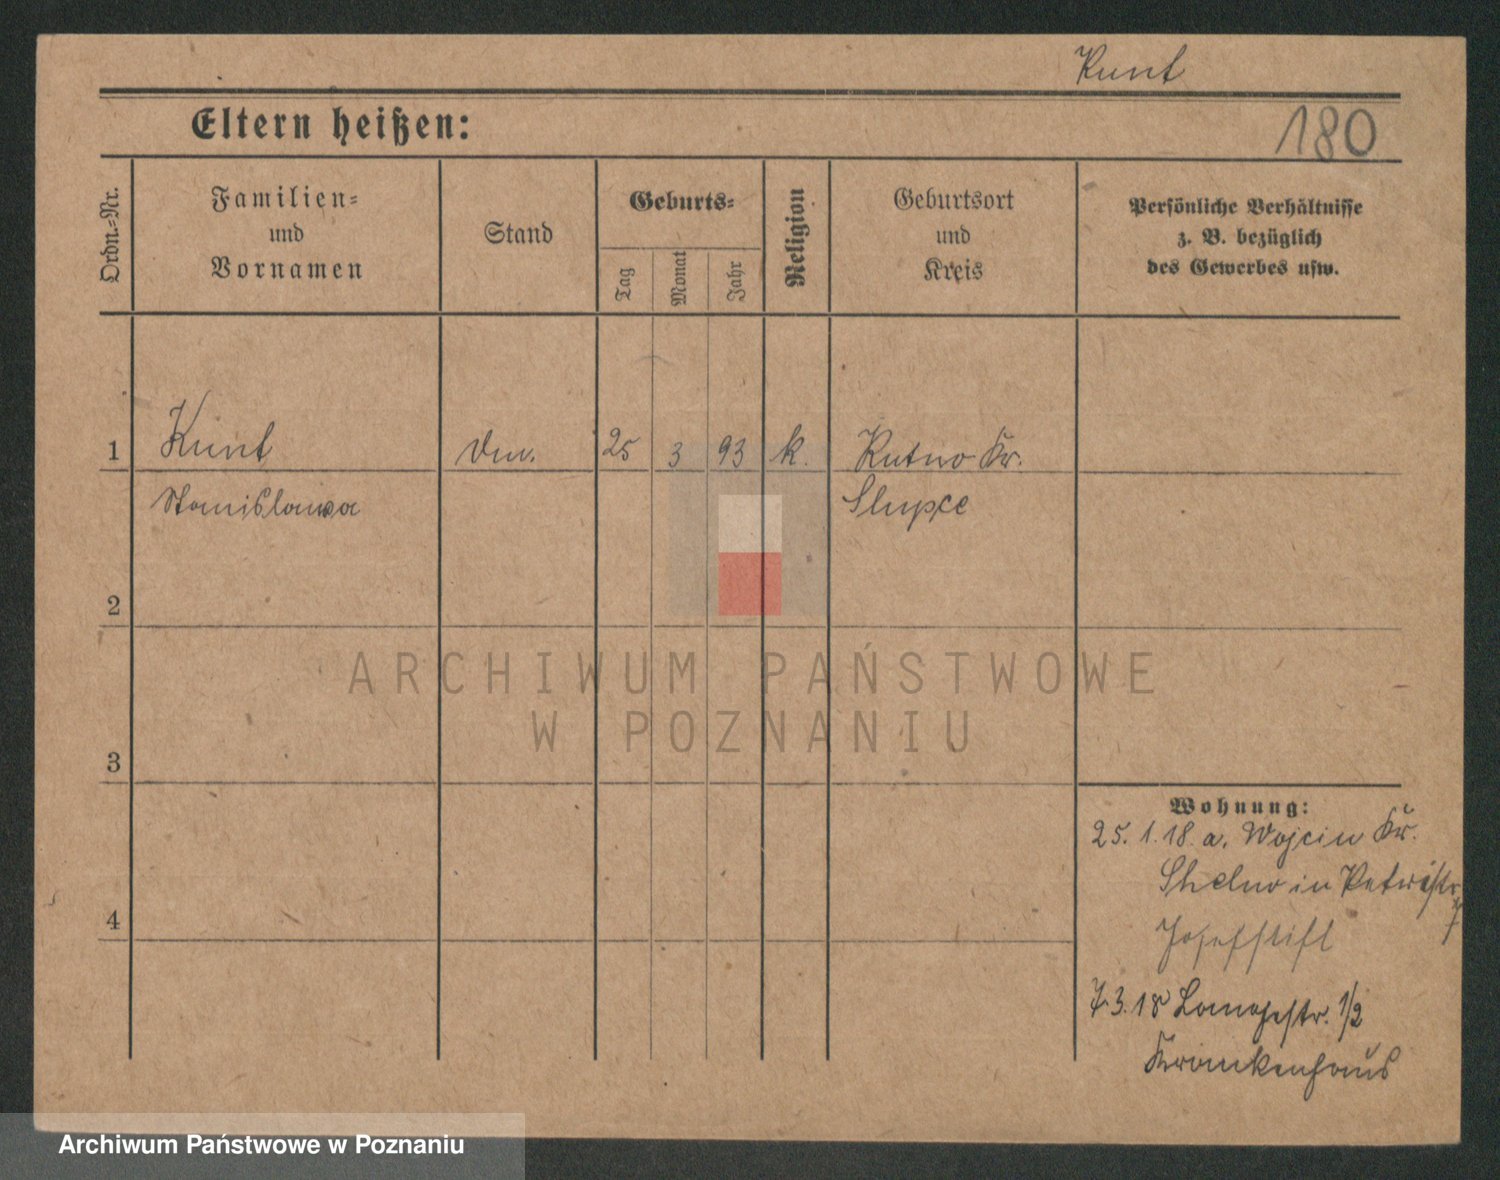 Kunt
Eltern heißen:
180
Ordn.-Nr.
Familien-
und
Vornamen
Stand
Geburts-
Tag
Monat
Jahr
Religion
Geburtsort
und
Kreis
Persönliche Verhältnisse
z. B. bezüglich
des Gewerbes usw.
1 Kunt 25 3 93 k. Kutno Kr.
Stanislawa Slupce
2
3
4
Wohnung:
25. 1. 18. a. Wojcin Kr.
in Petristr. 7
Josefstift
7. 3. 18 str. 1/2
Krankenhaus
ARCHIWUM PAŃSTWOWE
W POZNANIU
Archiwum Państwowe w Poznaniu